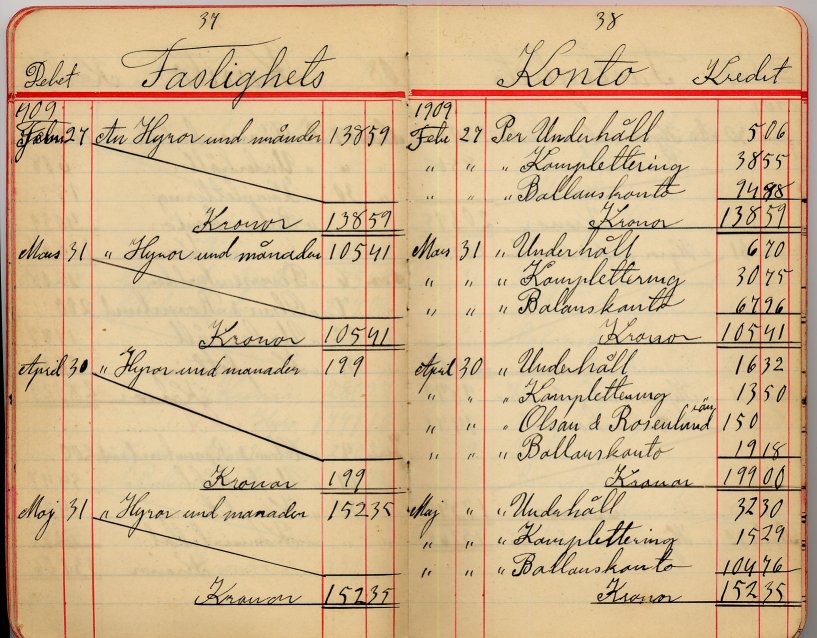 37
Debet Fastighets
1909
Febr 27 An Hyror und månder 13859
Kronor 13859
Mars 31 " Hyror und månader 10541
Kronor 10541
April 30 " Hyror und manader 199
Kronor 199
Maj 31 " Hyror und manader 15235
Kronor 15235
38
Konto Kredit
1909
Febr 27 Per Underhåll 506
" " " Komplettering 3855
" " " Ballanskonto 9498
Kronor 13859
Mars 31 " Underhåll 670
" " " Komplettering 3075
" " " Balanskonto 6796
Kronor 10541
April 30 " Underhåll 1632
" " " Komplettering 1350
" " " Olsan & Rosenlund 150
" " " Ballanskonto 1918
Kronor 19900
Maj " " Underhåll 3230
" " " Komplettering 1529
" " " Ballanskonto 10476
Kronor 15235